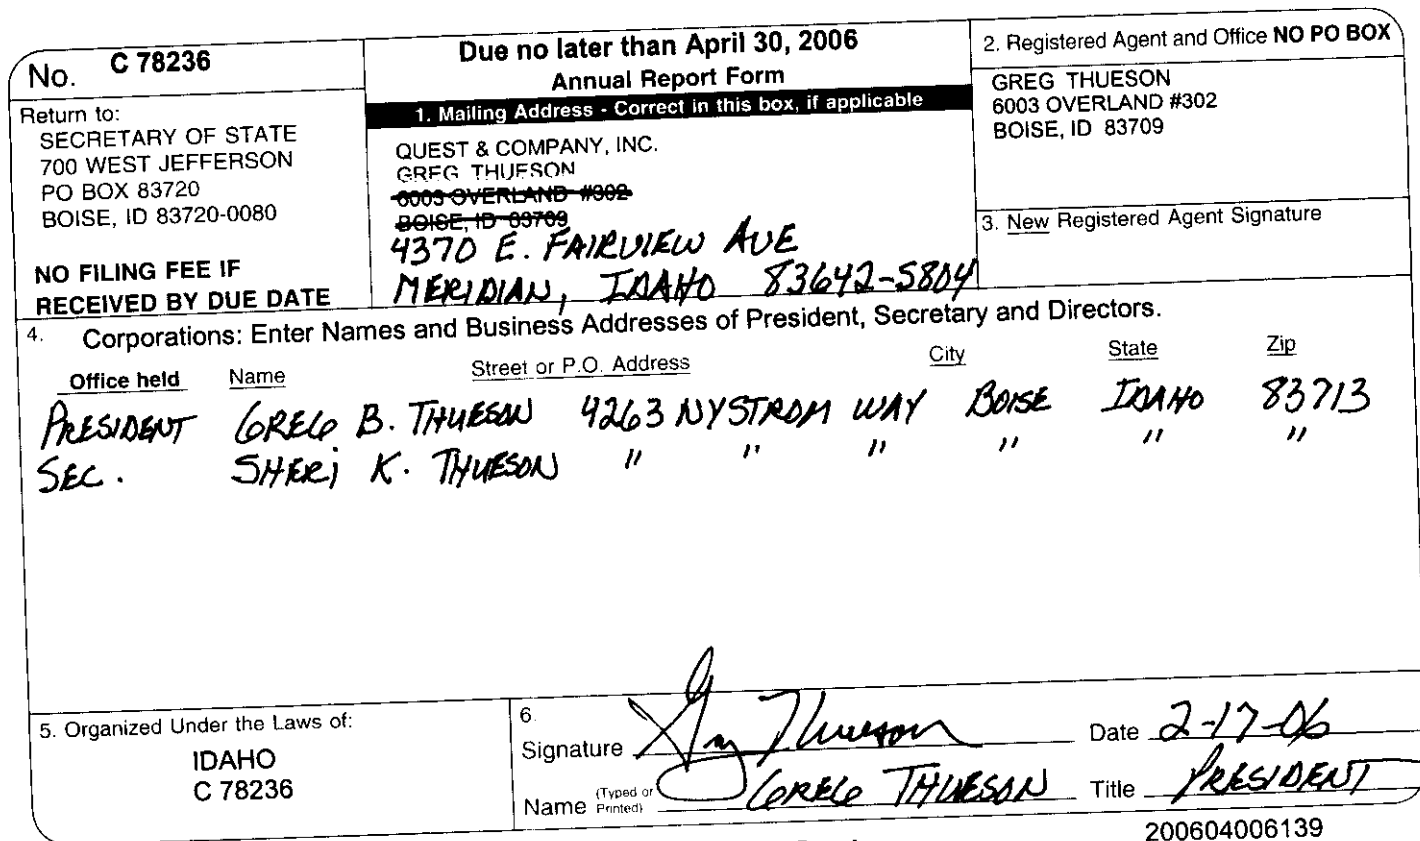 No. C 78236
Return to:
SECRETARY OF STATE
700 WEST JEFFERSON
PO BOX 83720
BOISE, ID 83720-0080
NO FILING FEE IF
RECEIVED BY DUE DATE
Due no later than April 30, 2006
Annual Report Form
1. Mailing Address - Correct in this box, if applicable
QUEST & COMPANY, INC.
GREG THUESON
6003 OVERLAND #302
BOISE, ID 83709
4370 E. FAIRVIEW AVE
MERIDIAN, IDAHO 83642-5804
2. Registered Agent and Office NO PO BOX
GREG THUESON
6003 OVERLAND #302
BOISE, ID 83709
3. New Registered Agent Signature
4. Corporations: Enter Names and Business Addresses of President, Secretary and Directors.
Office held Name Street or P.O. Address City State Zip
PRESIDENT GREG B. THUESON 4263 NYSTROM WAY BOISE IDAHO 83713
SEC. SHERi K. THUESON " " " " " "
5. Organized Under the Laws of:
IDAHO
C 78236
6.
Signature Greg Thueson Date 2-17-06
Name (Typed or Printed) GREG THUESON Title PRESIDENT
200604006139